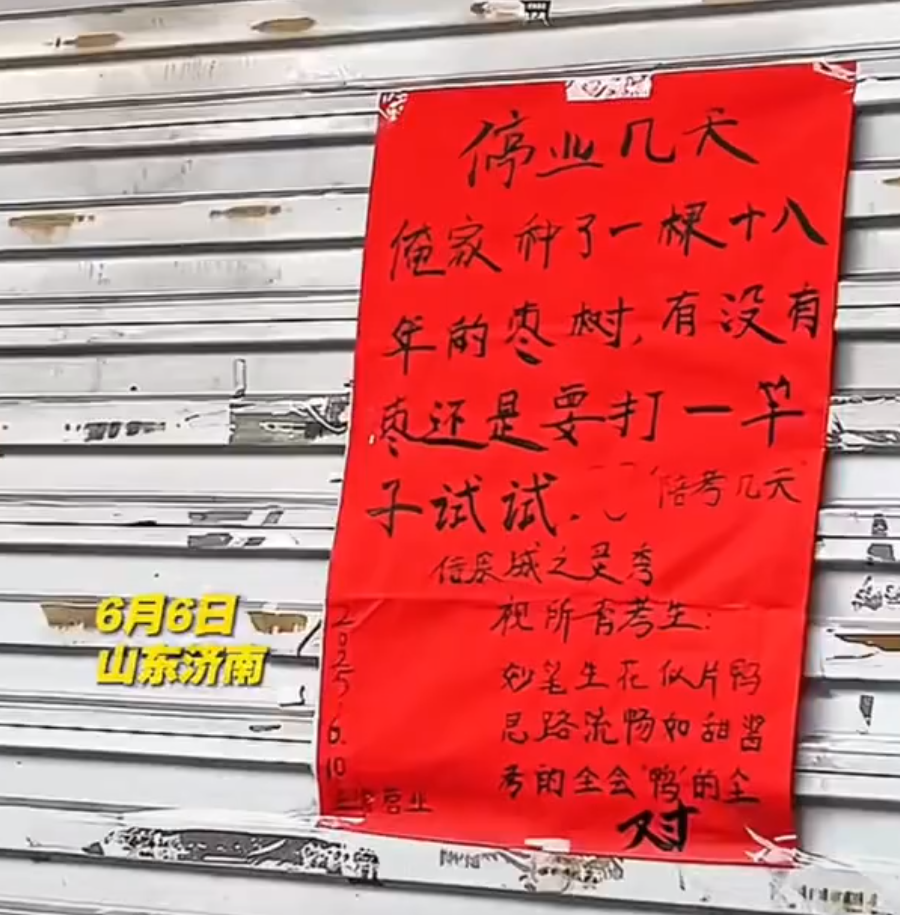 停业几天
俺家种了一棵十八
年的枣树,有没有
枣还是要打一竿
子试试.
陪考几天
泉城之灵秀
祝所有考生:
妙笔生花似片鸭
思路流畅如甜酱
考的全会"鸭"的全
对
2025.6.10
营业
6月6日
山东济南